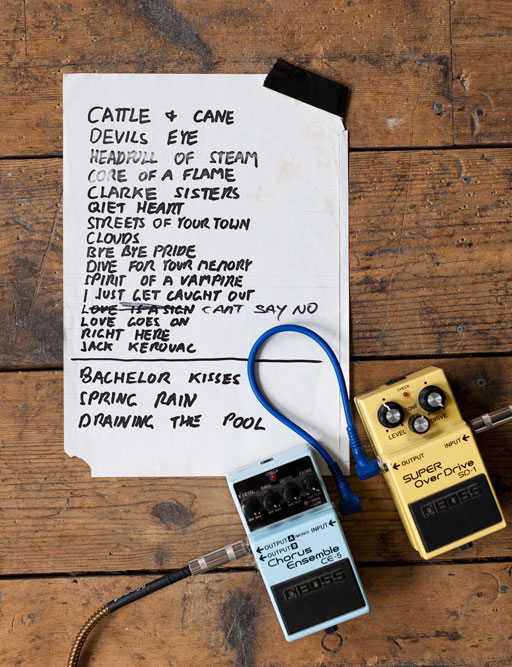 CATTLE & CANE
DEVILS EYE
HEADFULL OF STEAM
CORE OF A FLAME
CLARKE SISTERS
QIET HEART
STREETS OF YOUR TOWN
CLOUDS
BYE BYE PRIDE
DIVE FOR YOUR MEMORY
SPIRIT OF A VAMPIRE
I JUST GET CAUGHT OUT
LOVE IS A SIGN CANT SAY NO
LOVE GOES ON
RIGHT HERE
JACK KEROUAC
BACHELOR KISSES
SPRING RAIN
DRAINING THE POOL
CHECK
TONE
LEVEL DRIVE
OUTPUT INPUT
SUPER
Over Drive
SD-1
BOSS
OUTPUT A (MONO) INPUT
OUTPUT B
Chorus
Ensemble
CE-5
BOSS